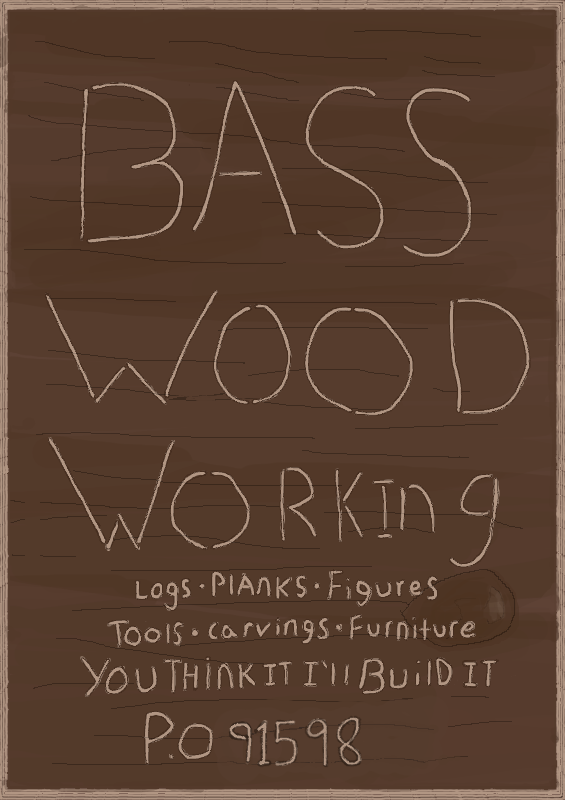 BASS
WOOD
WORKIng
Logs·PlANKS·Figures
Tools·carvings·Furniture
YOU THiNK IT I'll BuilD IT
P.O 91598